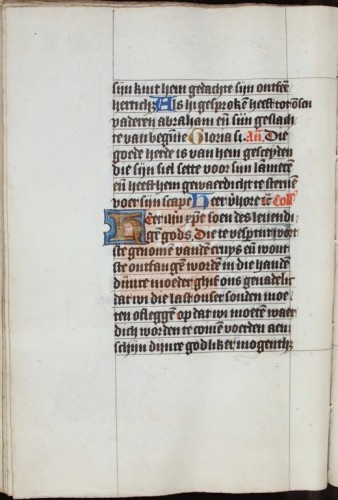 sijn kint hem gedachte sijn ontfer
hertich3 Als hi gesprokē heeft tot onsen
vaderen abraham eñ sijn geslach
te van beghīe Gloria si. Añ. Die
goede herde is van hem gesceyden
die sijn siel sette voor sijn lammerē
eñ heeft hem gewaerdicht te stervē
voer sijn scape Heer v̄hort Coll'
HEer ih̄u xp̄e soen des levendi
gē gods. Die te vespertijt vort
ste genomē vandē cruys eñ wout
ste ontfangē wordē in die handē
dijnre moeder ghif ons genadelic
dat wi die last onser sonden moe
ten afleggē op dat wi moetē waer
dich worden te comē voerden aen
schijn dijnre godliker mogenth3